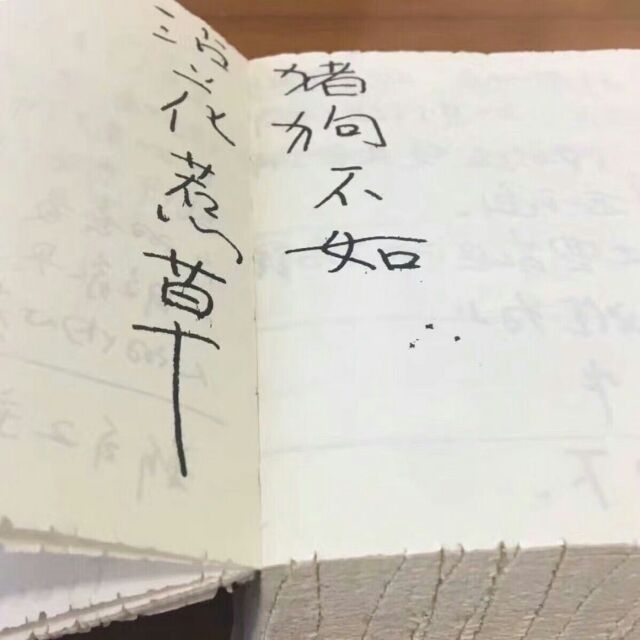 沾花惹草
猪狗不如